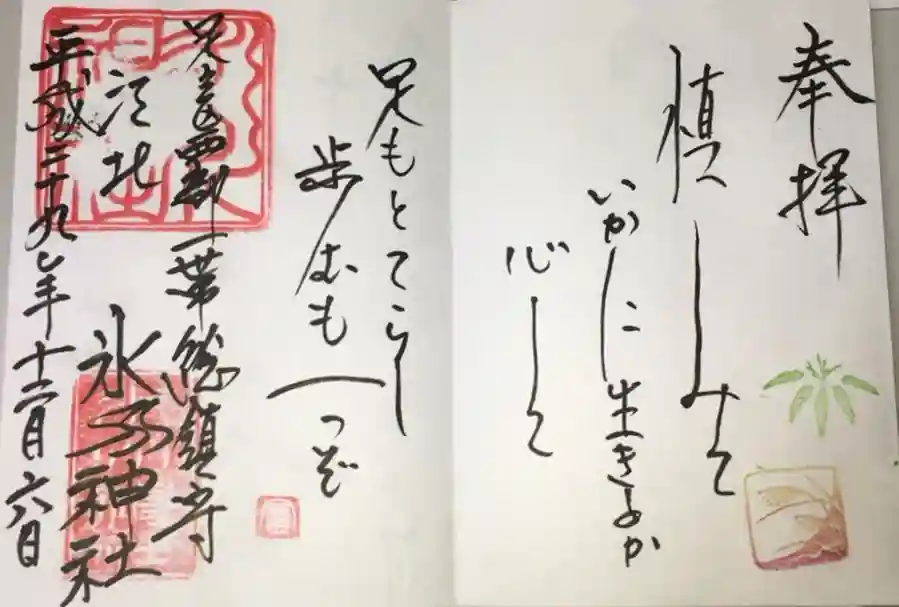 奉拝
慎しみて
いかに生きるか
心して
足もとてらし
歩むも一つぞ
足立郡一帯総鎮守
江北氷川神社
平成二十九年十二月六日